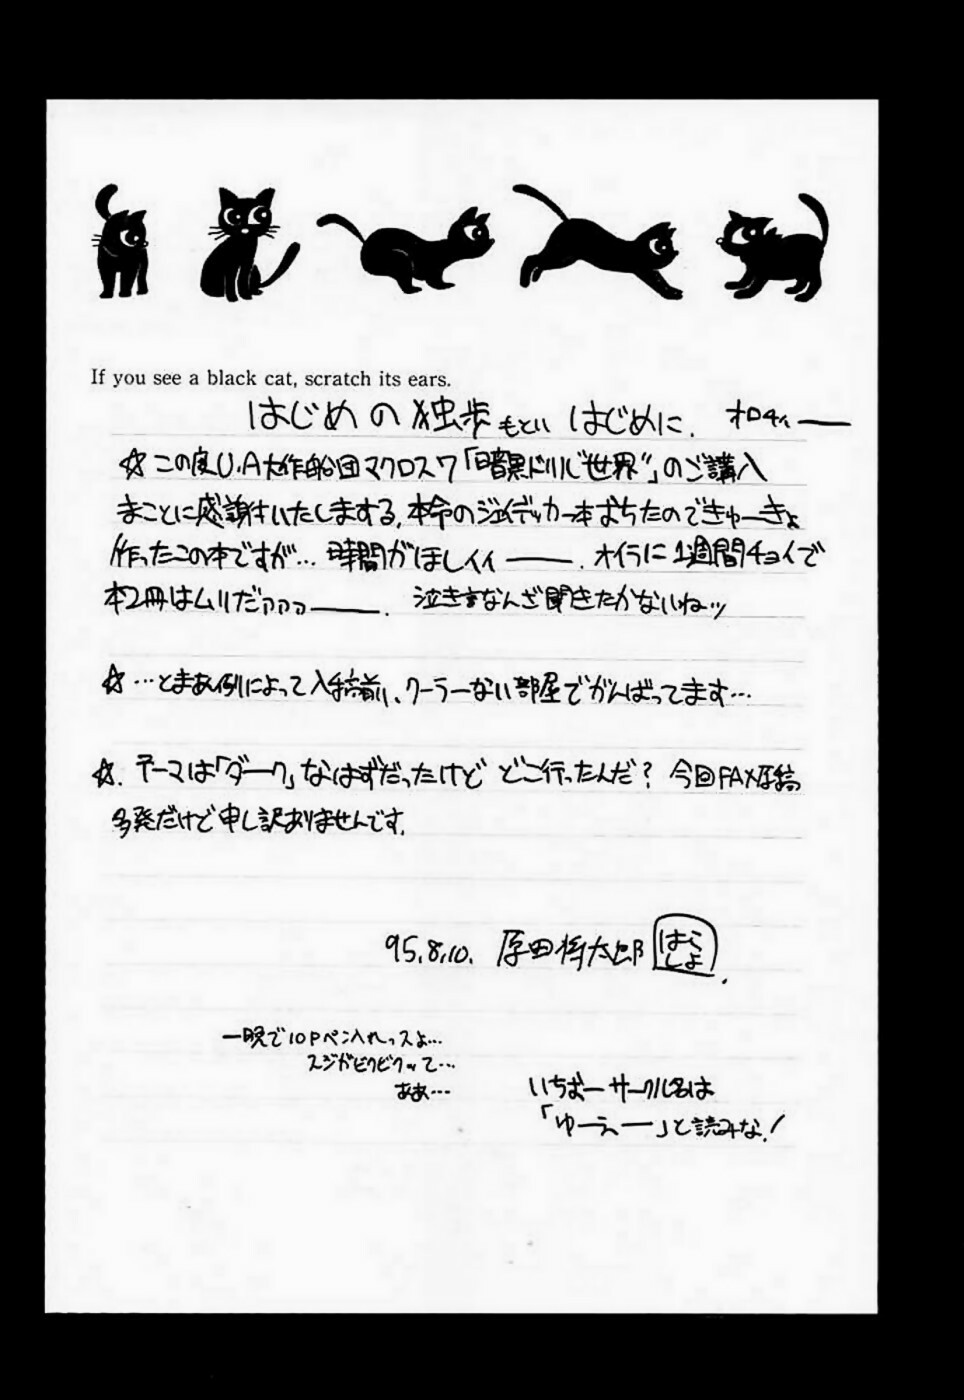 If you see a black cat, scratch its ears.
はじめの独歩 もとい はじめに. オロチィー
☆この度U.A大作船団マクロス7「暗黒ドリル世界"」のご講入
まことに感謝けいたしまする,本命のジェイデッカー本おちたのできゅーきょ
作ったこの本ですが… 時間がほしィィ——. オイラに1週間チョイで
本2冊はムリだァァァ——. 泣き言なんざ聞きたかないねッ
☆…とまあ例によって入稿前、クーラーない部屋でがんばってます…
☆. テーマは「ダーク」なはずだったけど どこ行ったんだ? 今回FAX原稿
多発だけど申し訳ありませんです.
95.8.10. 原田将太郎 はらしょ.
一晩で10Pペン入れっスよ…
スジがピクピクッて…
ああ…
いちおー サークル名は
「ゆーえー」と読みな!